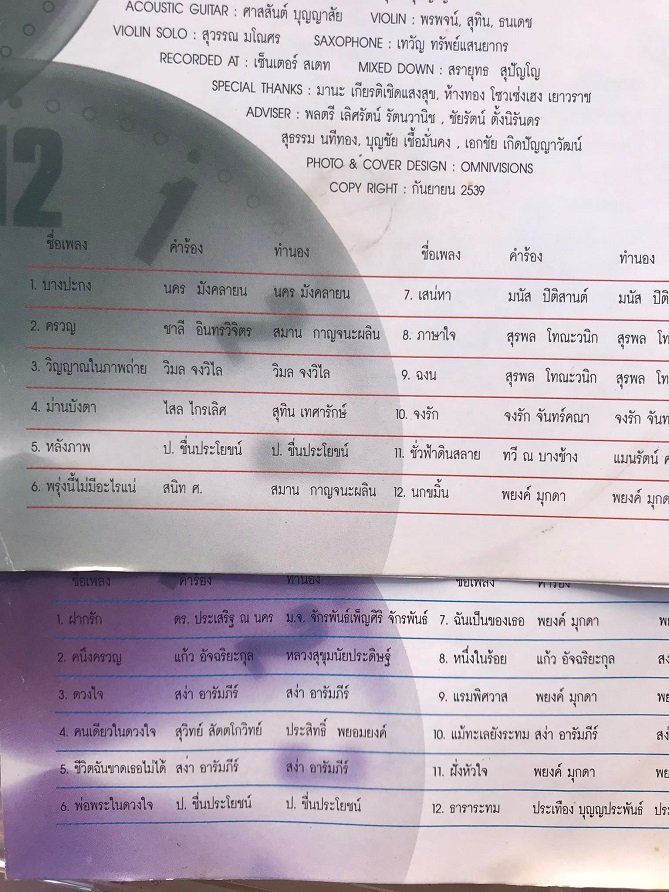 ACOUSTIC GUITAR : ศาสสันต์ บุญญาสัย VIOLIN : พรพจน์, สุทิน, ธนเดช
VIOLIN SOLO : สุวรรณ มโณศร SAXOPHONE : เทวัญ ทรัพย์แสนยากร
RECORDED AT : เซ็นเตอร์ สเตท MIXED DOWN : สรายุทธ สุปัญโญ
SPECIAL THANKS : มานะ เกียรติเชิดแสงสุข, ห้างทอง โซวเซ่งเฮง เยาวราช
ADVISER : พลตรี เลิศรัตน์ รัตนวานิช , ชัยรัตน์ ตั้งนิรันดร
สุธรรม นทีทอง, บุญชัย เชื้อมั่นคง , เอกชัย เกิดปัญญาวัฒน์
PHOTO & COVER DESIGN : OMNIVISIONS
COPY RIGHT : กันยายน 2539
12
1
ชื่อเพลง คำร้อง ทำนอง ชื่อเพลง คำร้อง ทำนอง
1. บางปะกง นคร มังคลายน นคร มังคลายน 7. เสน่หา มนัส ปิติสานต์ มนัส ปิติ
2. ครวญ ชาลี อินทรวิจิตร สมาน กาญจนะผลิน 8. ภาษาใจ สุรพล โทณะวนิก สุรพล โท
3. วิญญาณในภาพถ่าย วิมล จงวิไล วิมล จงวิไล 9. ฉงน สุรพล โทณะวนิก สุรพล โท
4. ม่านบังตา ไสล ไกรเลิศ สุทิน เทศารักษ์ 10. จงรัก จงรัก จันทร์คณา จงรัก จันท
5. หลังภาพ ป. ชื่นประโยชน์ ป. ชื่นประโยชน์ 11. ชั่วฟ้าดินสลาย ทวี ณ บางช้าง แมนรัตน์
6. พรุ่งนี้ไม่มีอะไรแน่ สนิท ศ. สมาน กาญจนะผลิน 12. นกขมิ้น พยงค์ มุกดา พยงค์ มุกด
ชื่อเพลง คำร้อง ทำนอง ชื่อเพลง คำร้อง
1. ฝากรัก ดร. ประเสริฐ ณ นคร ม.จ. จักรพันธ์เพ็ญศิริ จักรพันธ์ 7. ฉันเป็นของเธอ พยงค์ มุกดา พย
2. คนึงครวญ แก้ว อัจฉริยะกุล หลวงสุขุมนัยประดิษฐ์ 8. หนึ่งในร้อย แก้ว อัจฉริยะกุล สง่
3. ดวงใจ สง่า อารัมภีร์ สง่า อารัมภีร์ 9. แรมพิศวาส พยงค์ มุกดา พย
4. คนเดียวในดวงใจ สุวิทย์ สัตตโกวิทย์ ประสิทธิ์ พยอมยงค์ 10. แม้ทะเลยังระทม สง่า อารัมภีร์ สง่
5. ชีวิตฉันขาดเธอไม่ได้ สง่า อารัมภีร์ สง่า อารัมภีร์ 11. ฝั่งหัวใจ พยงค์ มุกดา พย
6. พ่อพระในดวงใจ ป. ชื่นประโยชน์ ป. ชื่นประโยชน์ 12. ธาราระทม ประเทือง บุญญประพันธ์ ประ